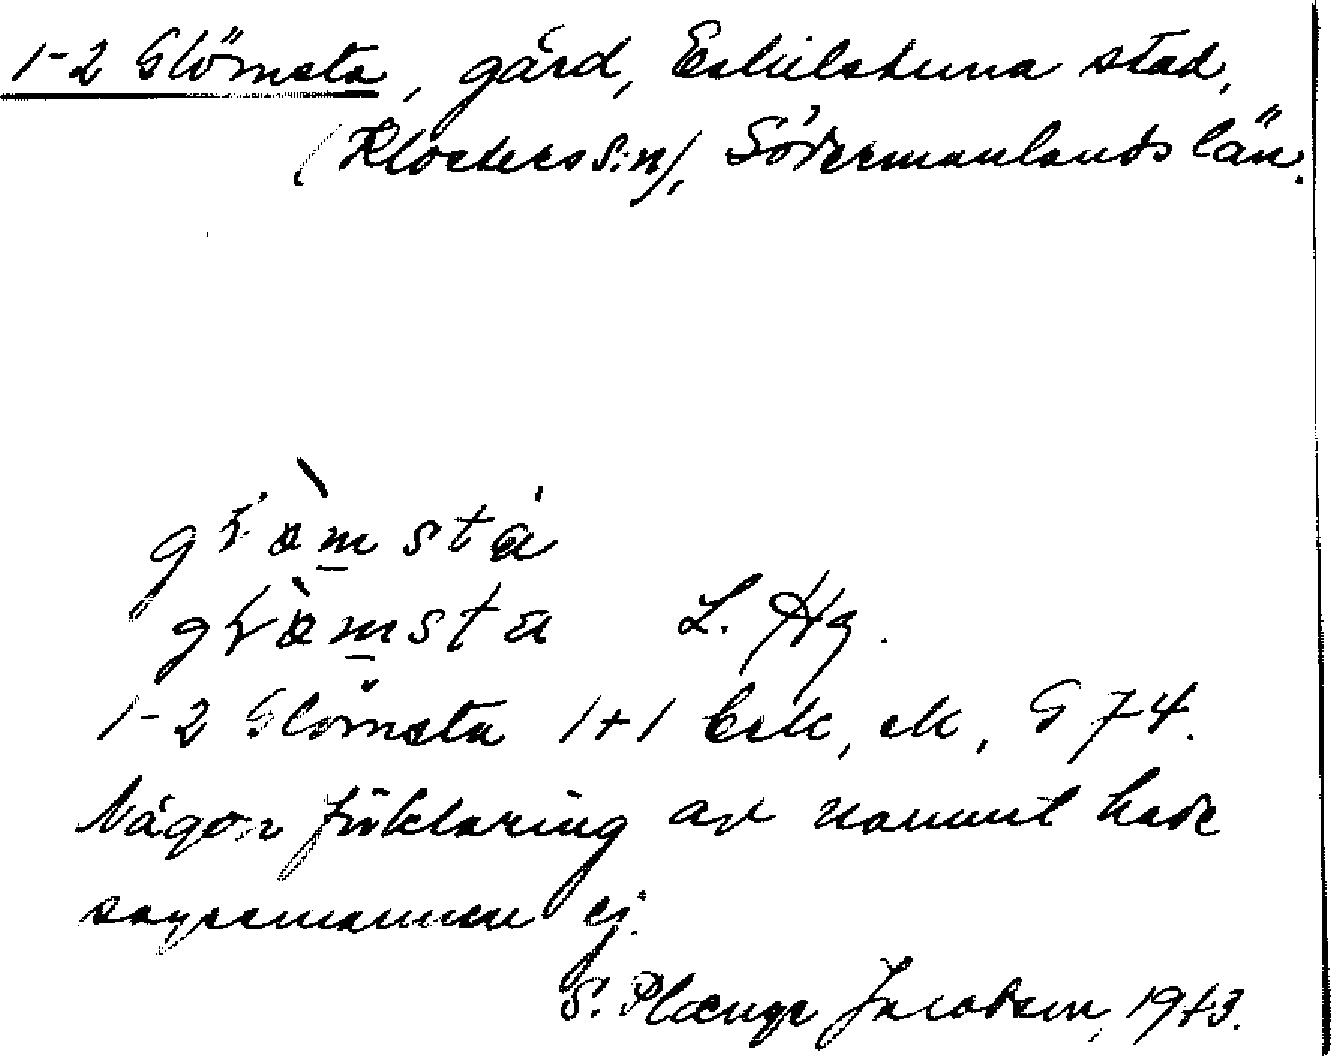 1-2 Glömsta, gård, Eskilstuna stad,
(Klosters s:n), Södermanlands län.
glömsta
glömsta L. Hg.
1-2 Glömsta 1+1 Esk, ek, G 74.
Någon förklaring av namnet hade
sagesmannen ej.
S. Plænge Jacobson, 1943.